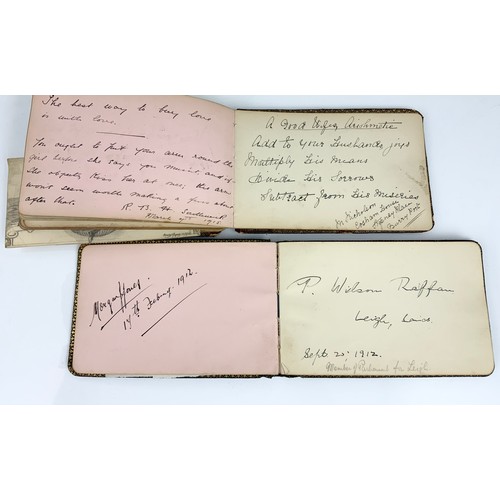 The best way to buy love
is with love.
You ought to put your arm round the
girl before she says you mustn't and if
she objects kiss her at once;
won't seem worth making a fuss about
after that.
R. B. H.
March 1912
A Good Wife's Arithmetic
Add to your Husbands joys
Multiply his means
Divide his sorrows
Subtract from his miseries
M. Nicholson
House
Burry Port
Morgan Jones.
14th Febry. 1912.
P. Wilson Raffan
Leigh, Lancs.
Sept. 25, 1912.
Member of Parliament for Leigh